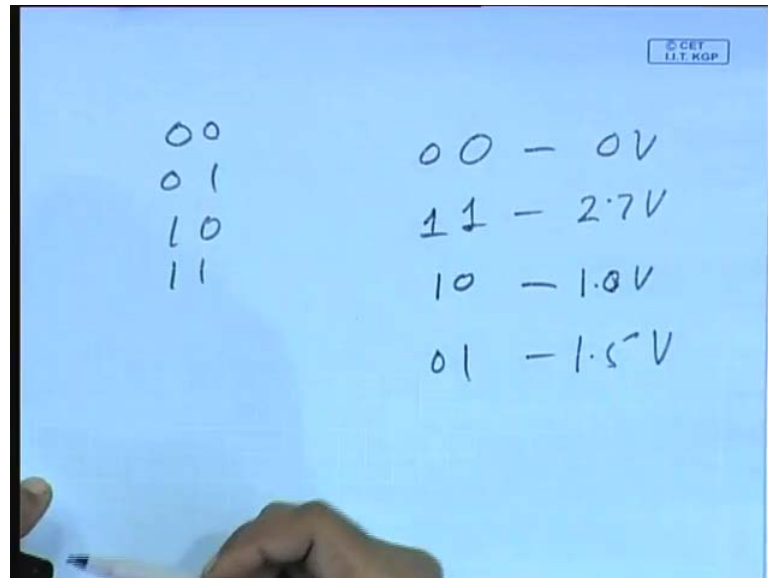 © CET
I.I.T. KGP
00
01
10
11
00 – 0V
11 – 2.7V
10 – 1.0V
01 – 1.5V